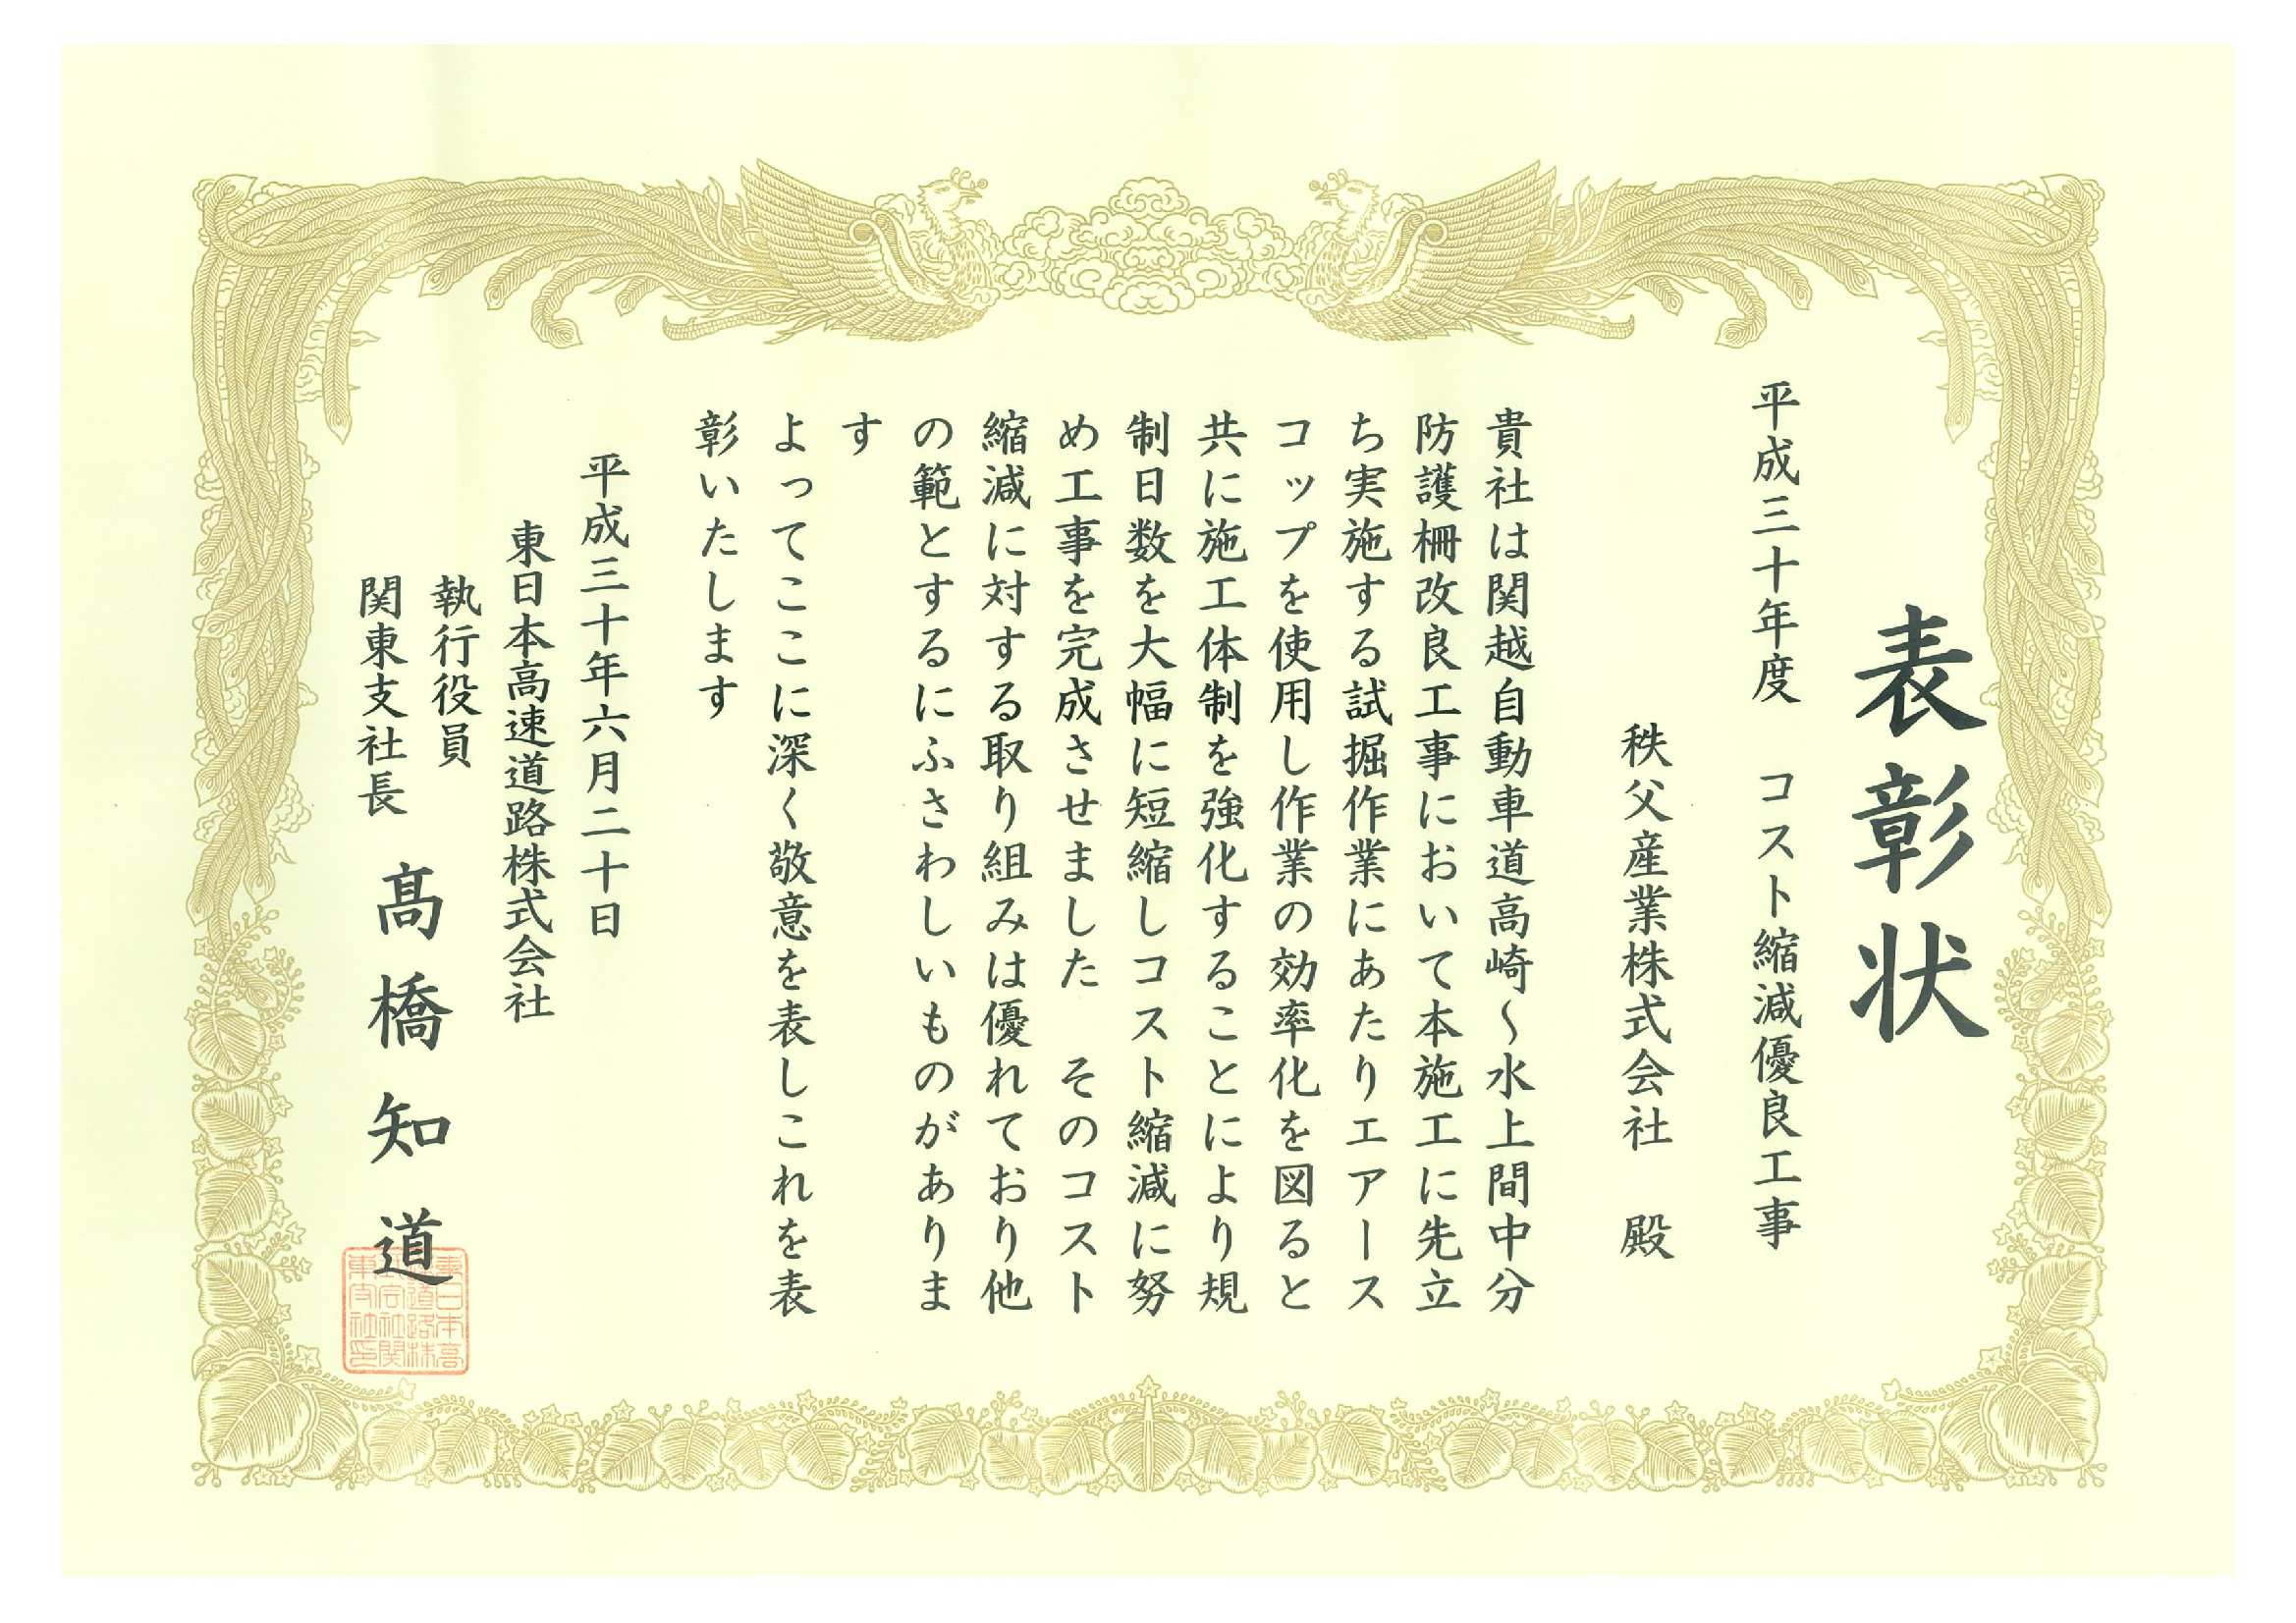 表彰状
平成三十年度　コスト縮減優良工事
秩父産業株式会社　殿
貴社は関越自動車道高崎～水上間中分
防護柵改良工事において本施工に先立
ち実施する試掘作業にあたりエアース
コップを使用し作業の効率化を図ると
共に施工体制を強化することにより規
制日数を大幅に短縮しコスト縮減に努
め工事を完成させました　そのコスト
縮減に対する取り組みは優れており他
の範とするにふさわしいものがありま
す
よってここに深く敬意を表しこれを表
彰いたします
平成三十年六月二十日
東日本高速道路株式会社
執行役員
関東支社長
髙橋知道
東日本高
速道路株
式会社関
東支社印